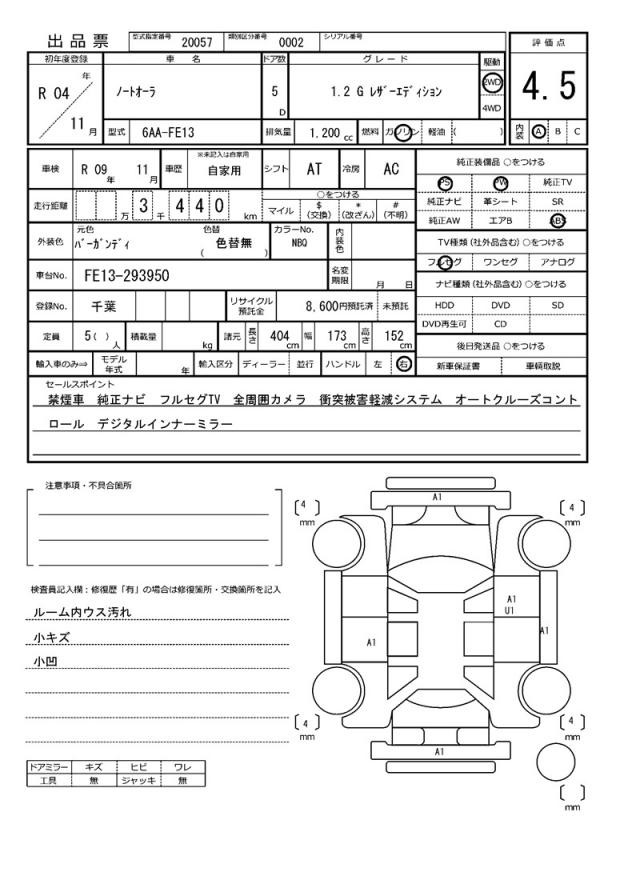 出品票 型式指定番号 20057 類別区分番号 0002 シリアル番号
評価点
4.5
内装 A B C
初年度登録 車名 ドア数 グレード 駆動
R 04 年 11 月
ノートオーラ 5 D 1.2 G レザーエディション 2WD
4WD
型式 6AA-FE13 排気量 1.200 cc 燃料 ガソリン 軽油 ( )
車検 R 09 年 11 月 車歴 ※未記入は自家用 自家用 シフト AT 冷房 AC
走行距離 万 3 千 4 4 0 km
○をつける
マイル $(交換) *(改ざん) #(不明)
外装色 元色 バーガンディ 色替 ( 色替無 ) カラーNo. NBQ 内装色
車台No. FE13-293950 名変期限 月 日
登録No. 千葉 リサイクル預託金 8,600円預託済 未預託
定員 5( ) 人 積載量 kg 諸元 長さ 404 cm 幅 173 cm 高さ 152 cm
輸入車のみ⇒ モデル年式 年 輸入区分 ディーラー 並行 ハンドル 左 右
純正装備品 ○をつける
PS PW 純正TV
純正ナビ 革シート SR
純正AW エアB ABS
TV種類 (社外品含む) ○をつける
フルセグ ワンセグ アナログ
ナビ種類 (社外品含む) ○をつける
HDD DVD SD
DVD再生可 CD
後日発送品 ○をつける
新車保証書 車輌取説
セールスポイント
禁煙車 純正ナビ フルセグTV 全周囲カメラ 衝突被害軽減システム オートクルーズコント
ロール デジタルインナーミラー
注意事項・不具合箇所
検査員記入欄：修復歴「有」の場合は修復箇所・交換箇所を記入
ルーム内ウス汚れ
小キズ
小凹
ドアミラー キズ ヒビ ワレ
工具 無 ジャッキ 無
A1
[ 4 ] mm
[ 4 ] mm
A1
U1
A1
A1
[ 4 ] mm
[ 4 ] mm
A1
[ ] mm